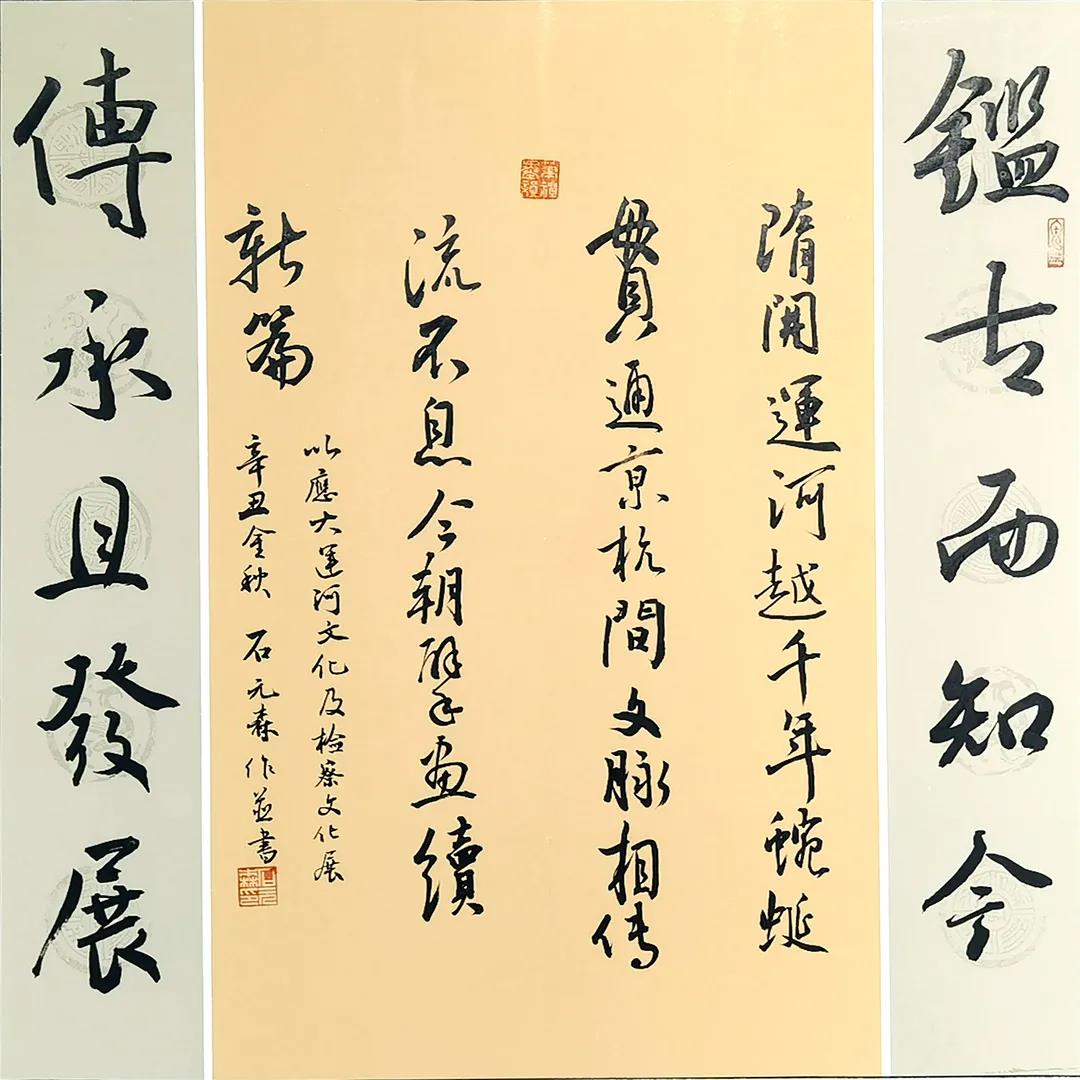 鑑古而知今
隋開運河越千年蜿蜒
貫通京杭間文脉相傳
流不息今朝擘画續
新篇
以應大運河文化及檢察文化展
辛丑金秋 石元森作並書
傳承且發展